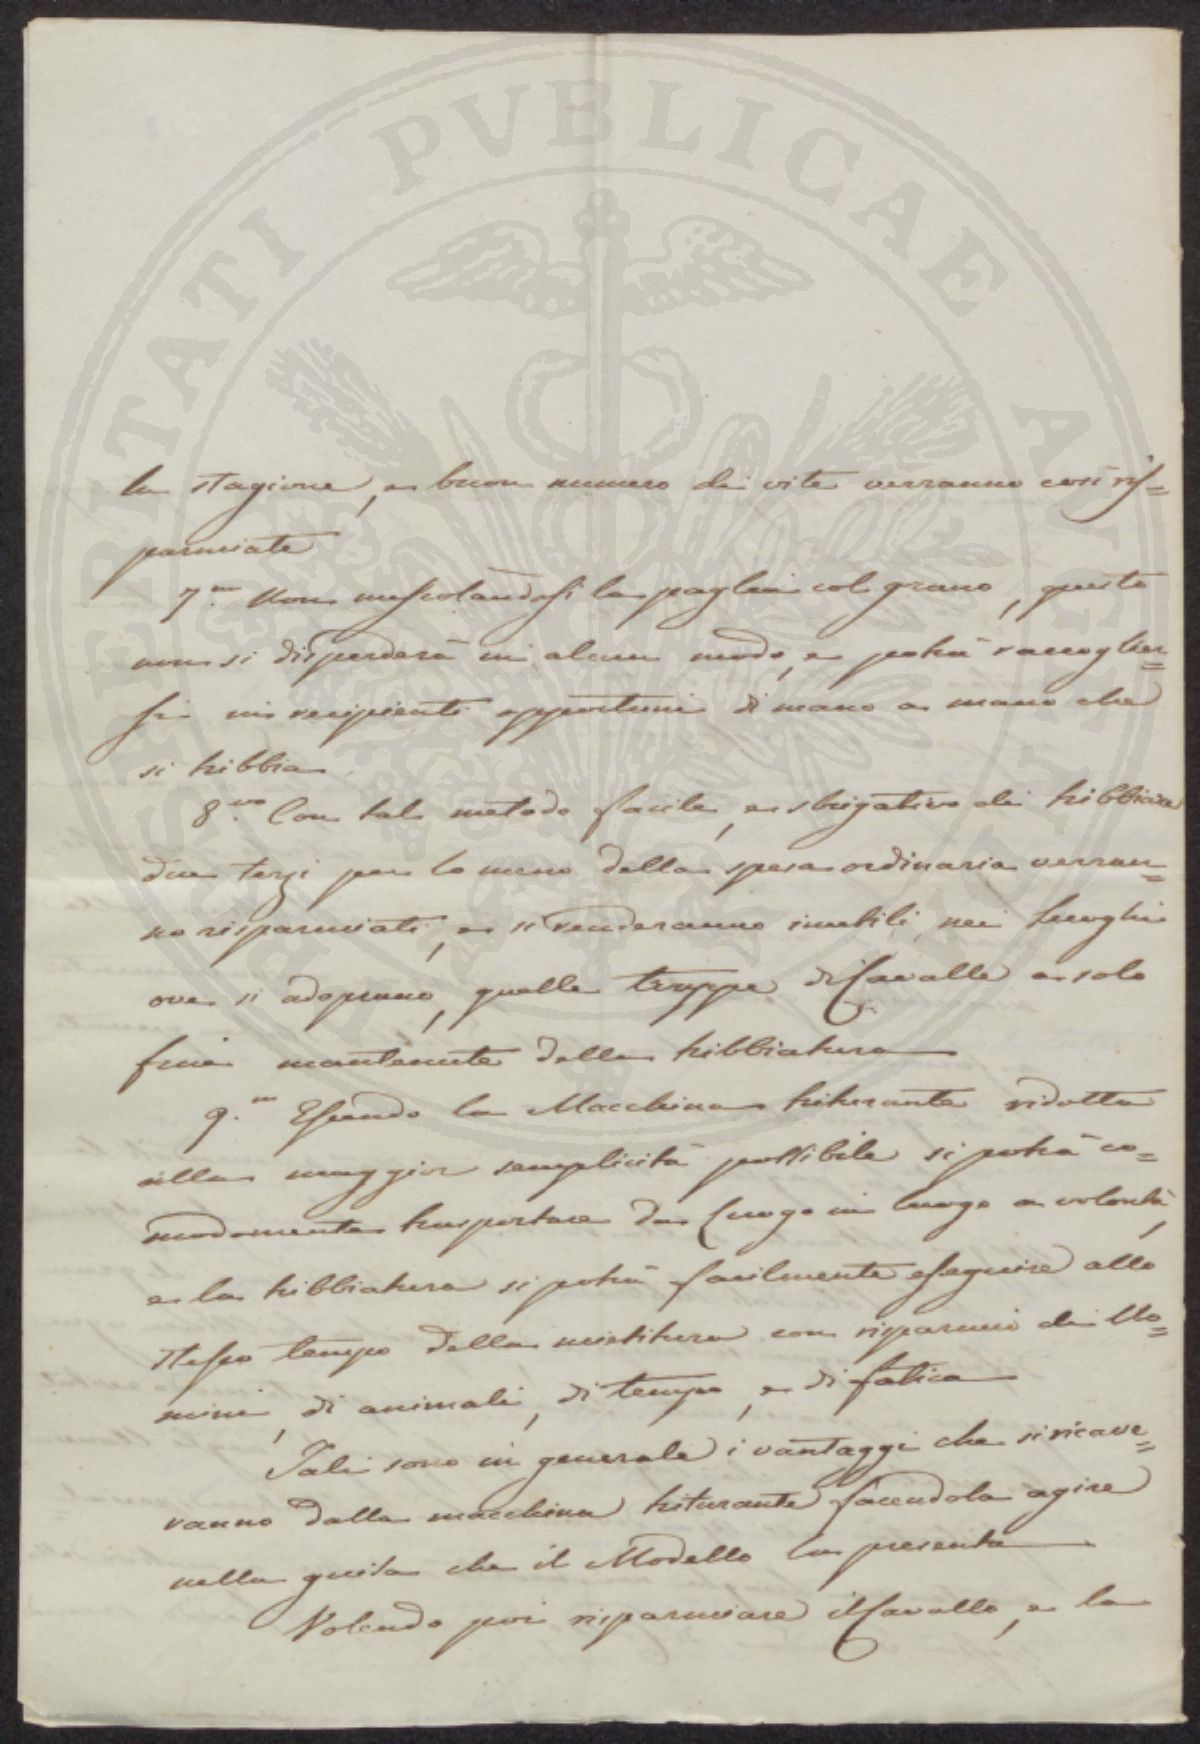 la stagione, e buon numero di vite verranno così ris=
parmiate
7.mo Non mescolandosi la paglia col grano, questo
non si disperderà in alcun modo, e potrà raccoglier=
si in recipienti opportuni di mano a mano che
si tribbia.
8.vo Con tal metodo facile, e sbrigativo di tribbiare
due terzi per lo meno della spesa ordinaria verran=
no risparmiati, e si renderanno inutili, nei luoghi
ove si adoprano, quelle truppe di Cavalle a solo
fine mantenute della tribbiatura
9.no Essendo la Macchina triturante ridotta
alla maggior semplicità possibile si potrà co=
modamente trasportare da luogo in luogo a volontà,
e la tribbiatura si potrà facilmente eseguire allo
stesso tempo della mietitura con risparmio di Uo=
mini, di animali, di tempo, e di fatica
Tali sono in generale i vantaggi che si ricave=
ranno dalla macchina triturante facendola agire
nella guisa che il Modello la presenta
Volendo poi risparmiare il Cavallo, e la
ASSERITATI PVBLICAE AVGENDAE